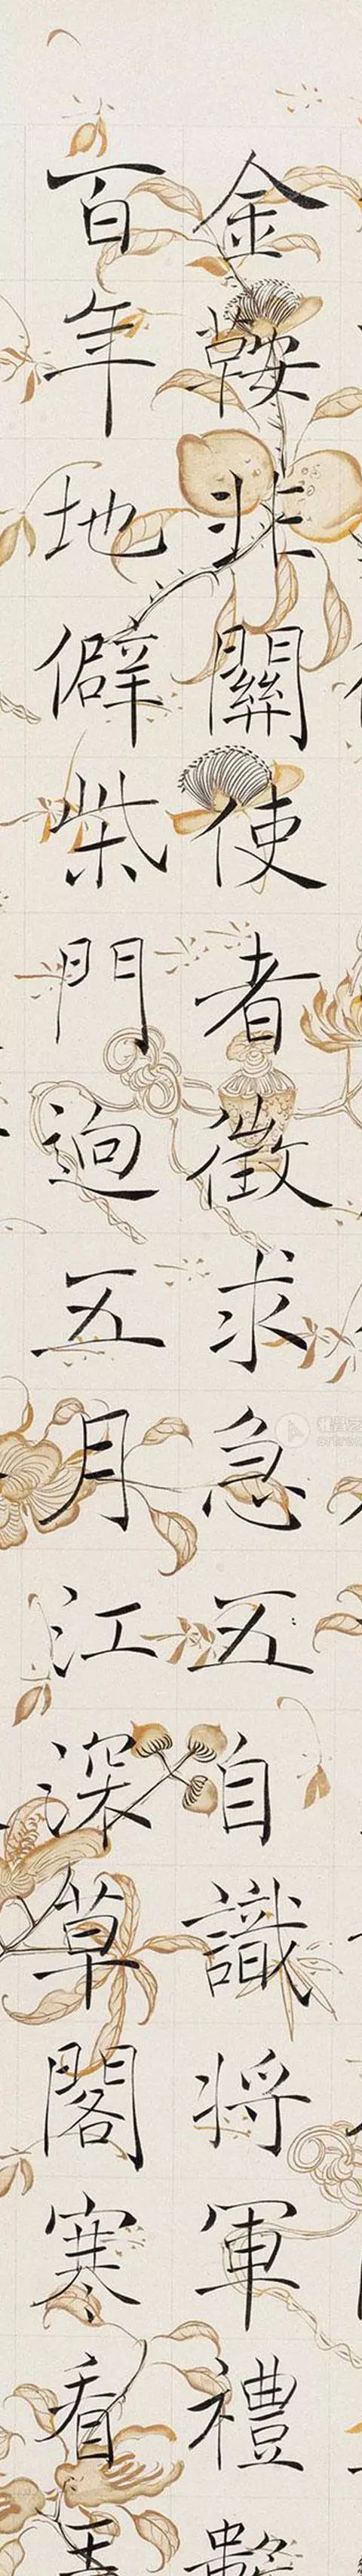 金鞍非關使者徵求急五自識将軍禮
百年地僻柴門逈五月江深草閣寒看